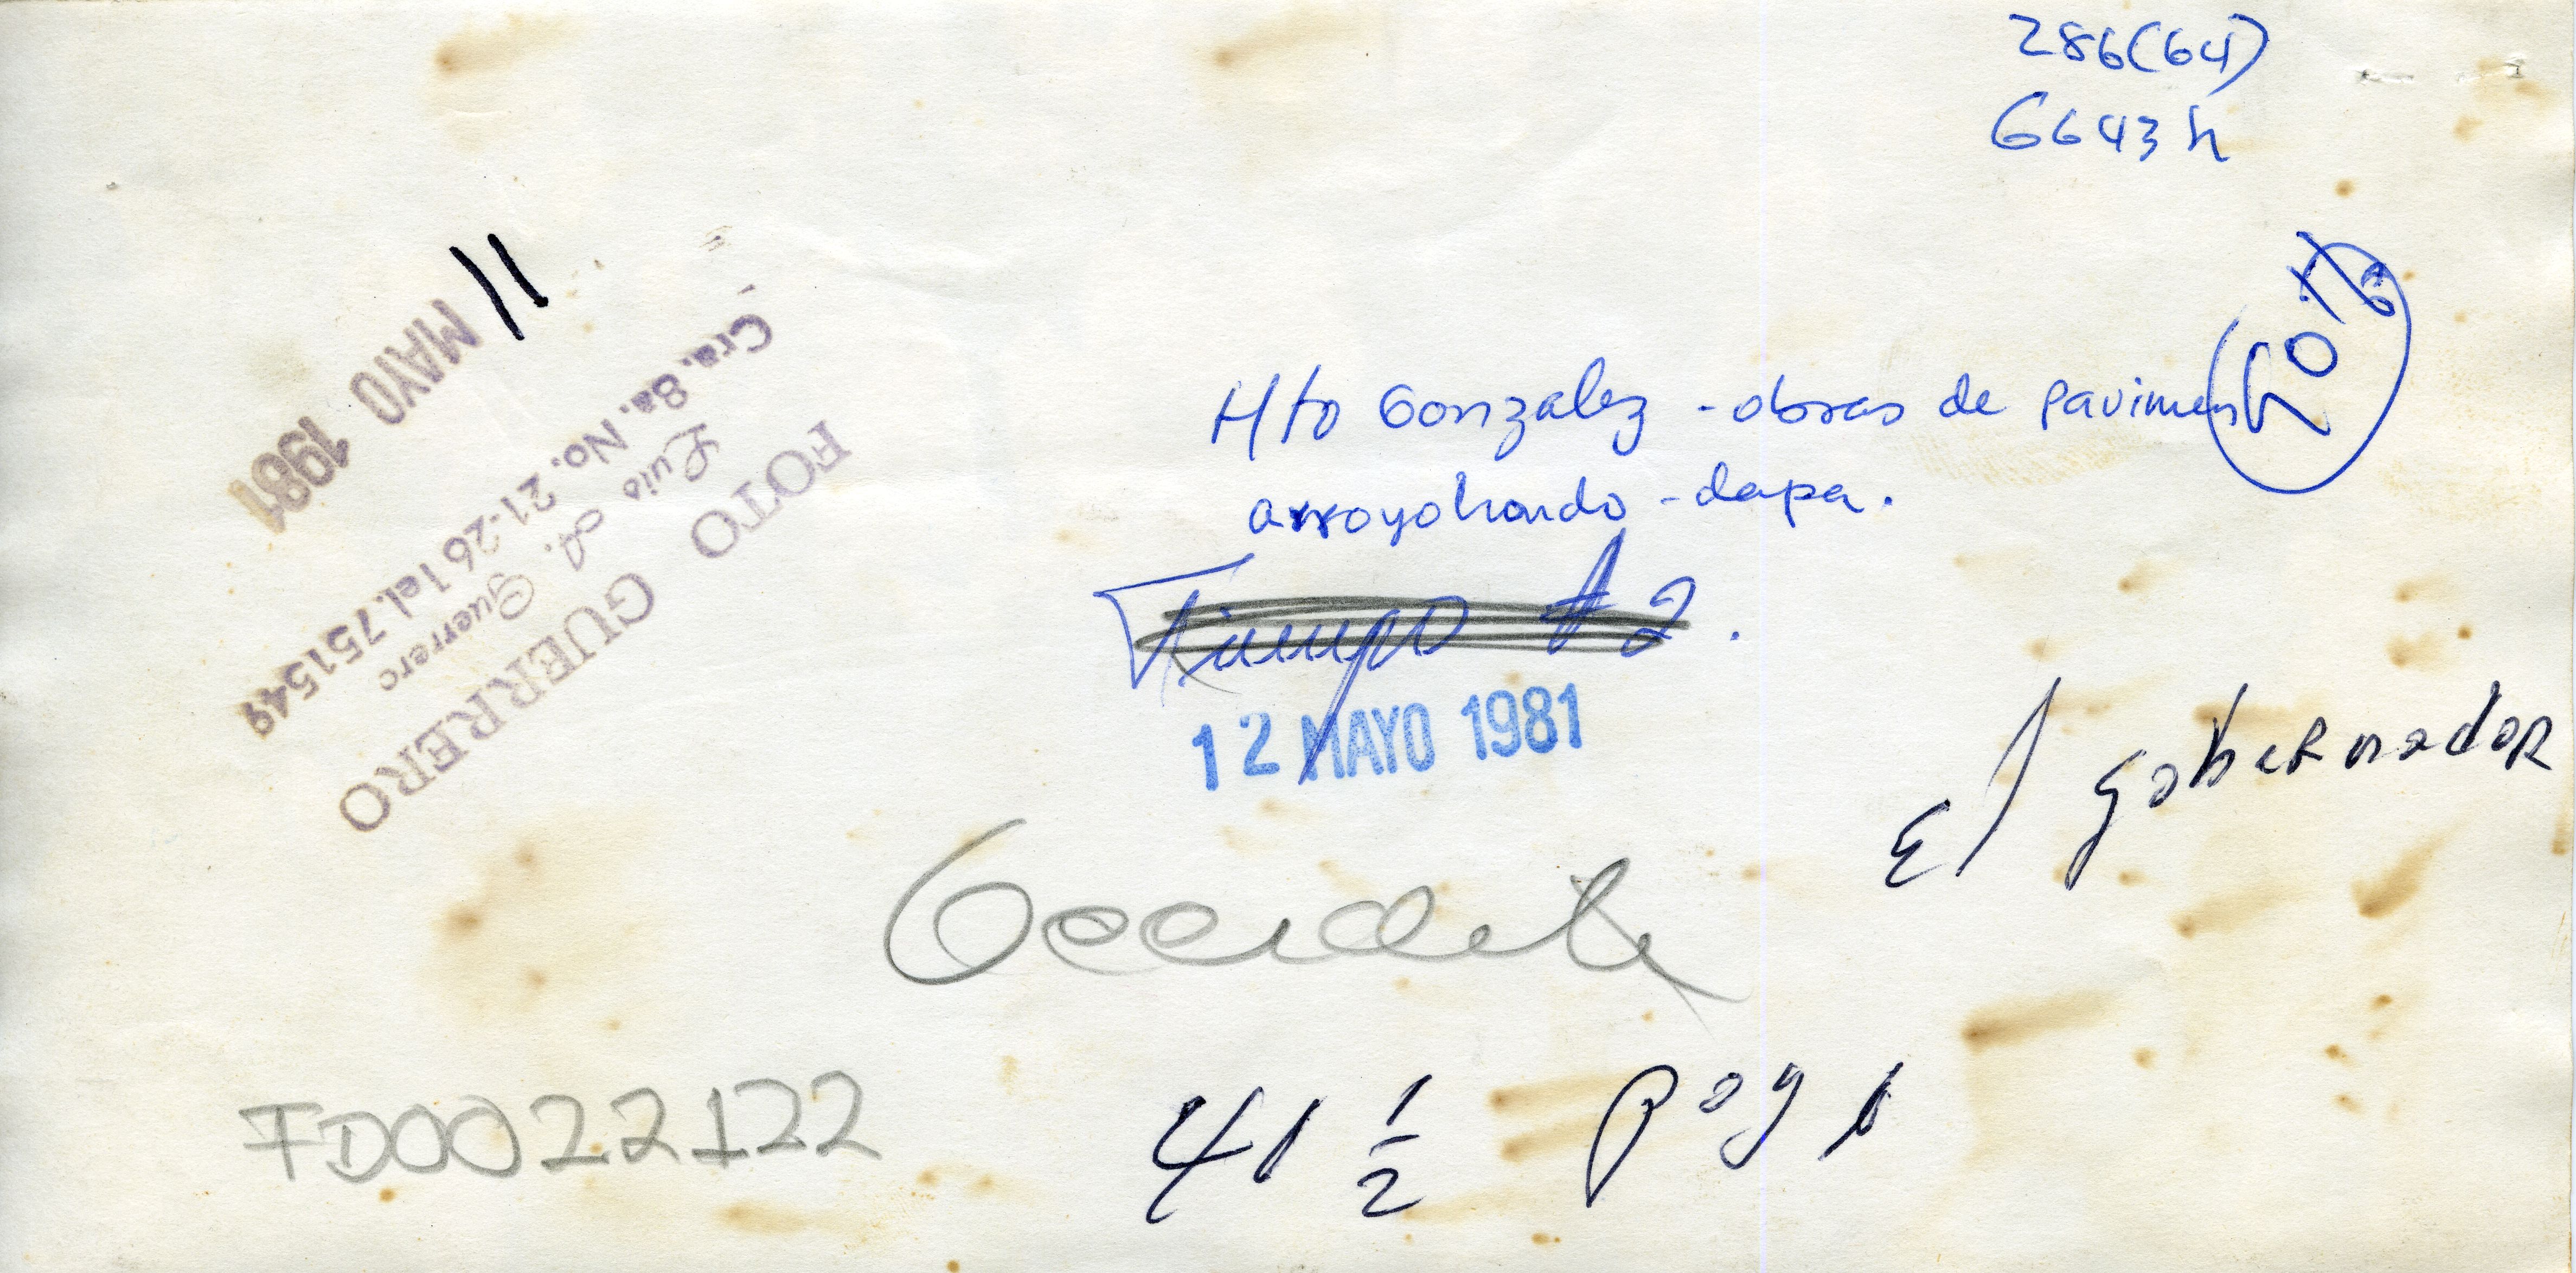 286(64)
6643 h
11
MAYO 1981
FOTO GUERRERO
Luis A. Guerrero
Cra. 8a. No. 21-26 Tel. 751549
Hto Gonzalez - obras de pavimen
arroyohondo - dapa.
Tiempo A 2.
12 MAYO 1981
El gobernador
Occidente
FD0022122
41 1/2 pag 1